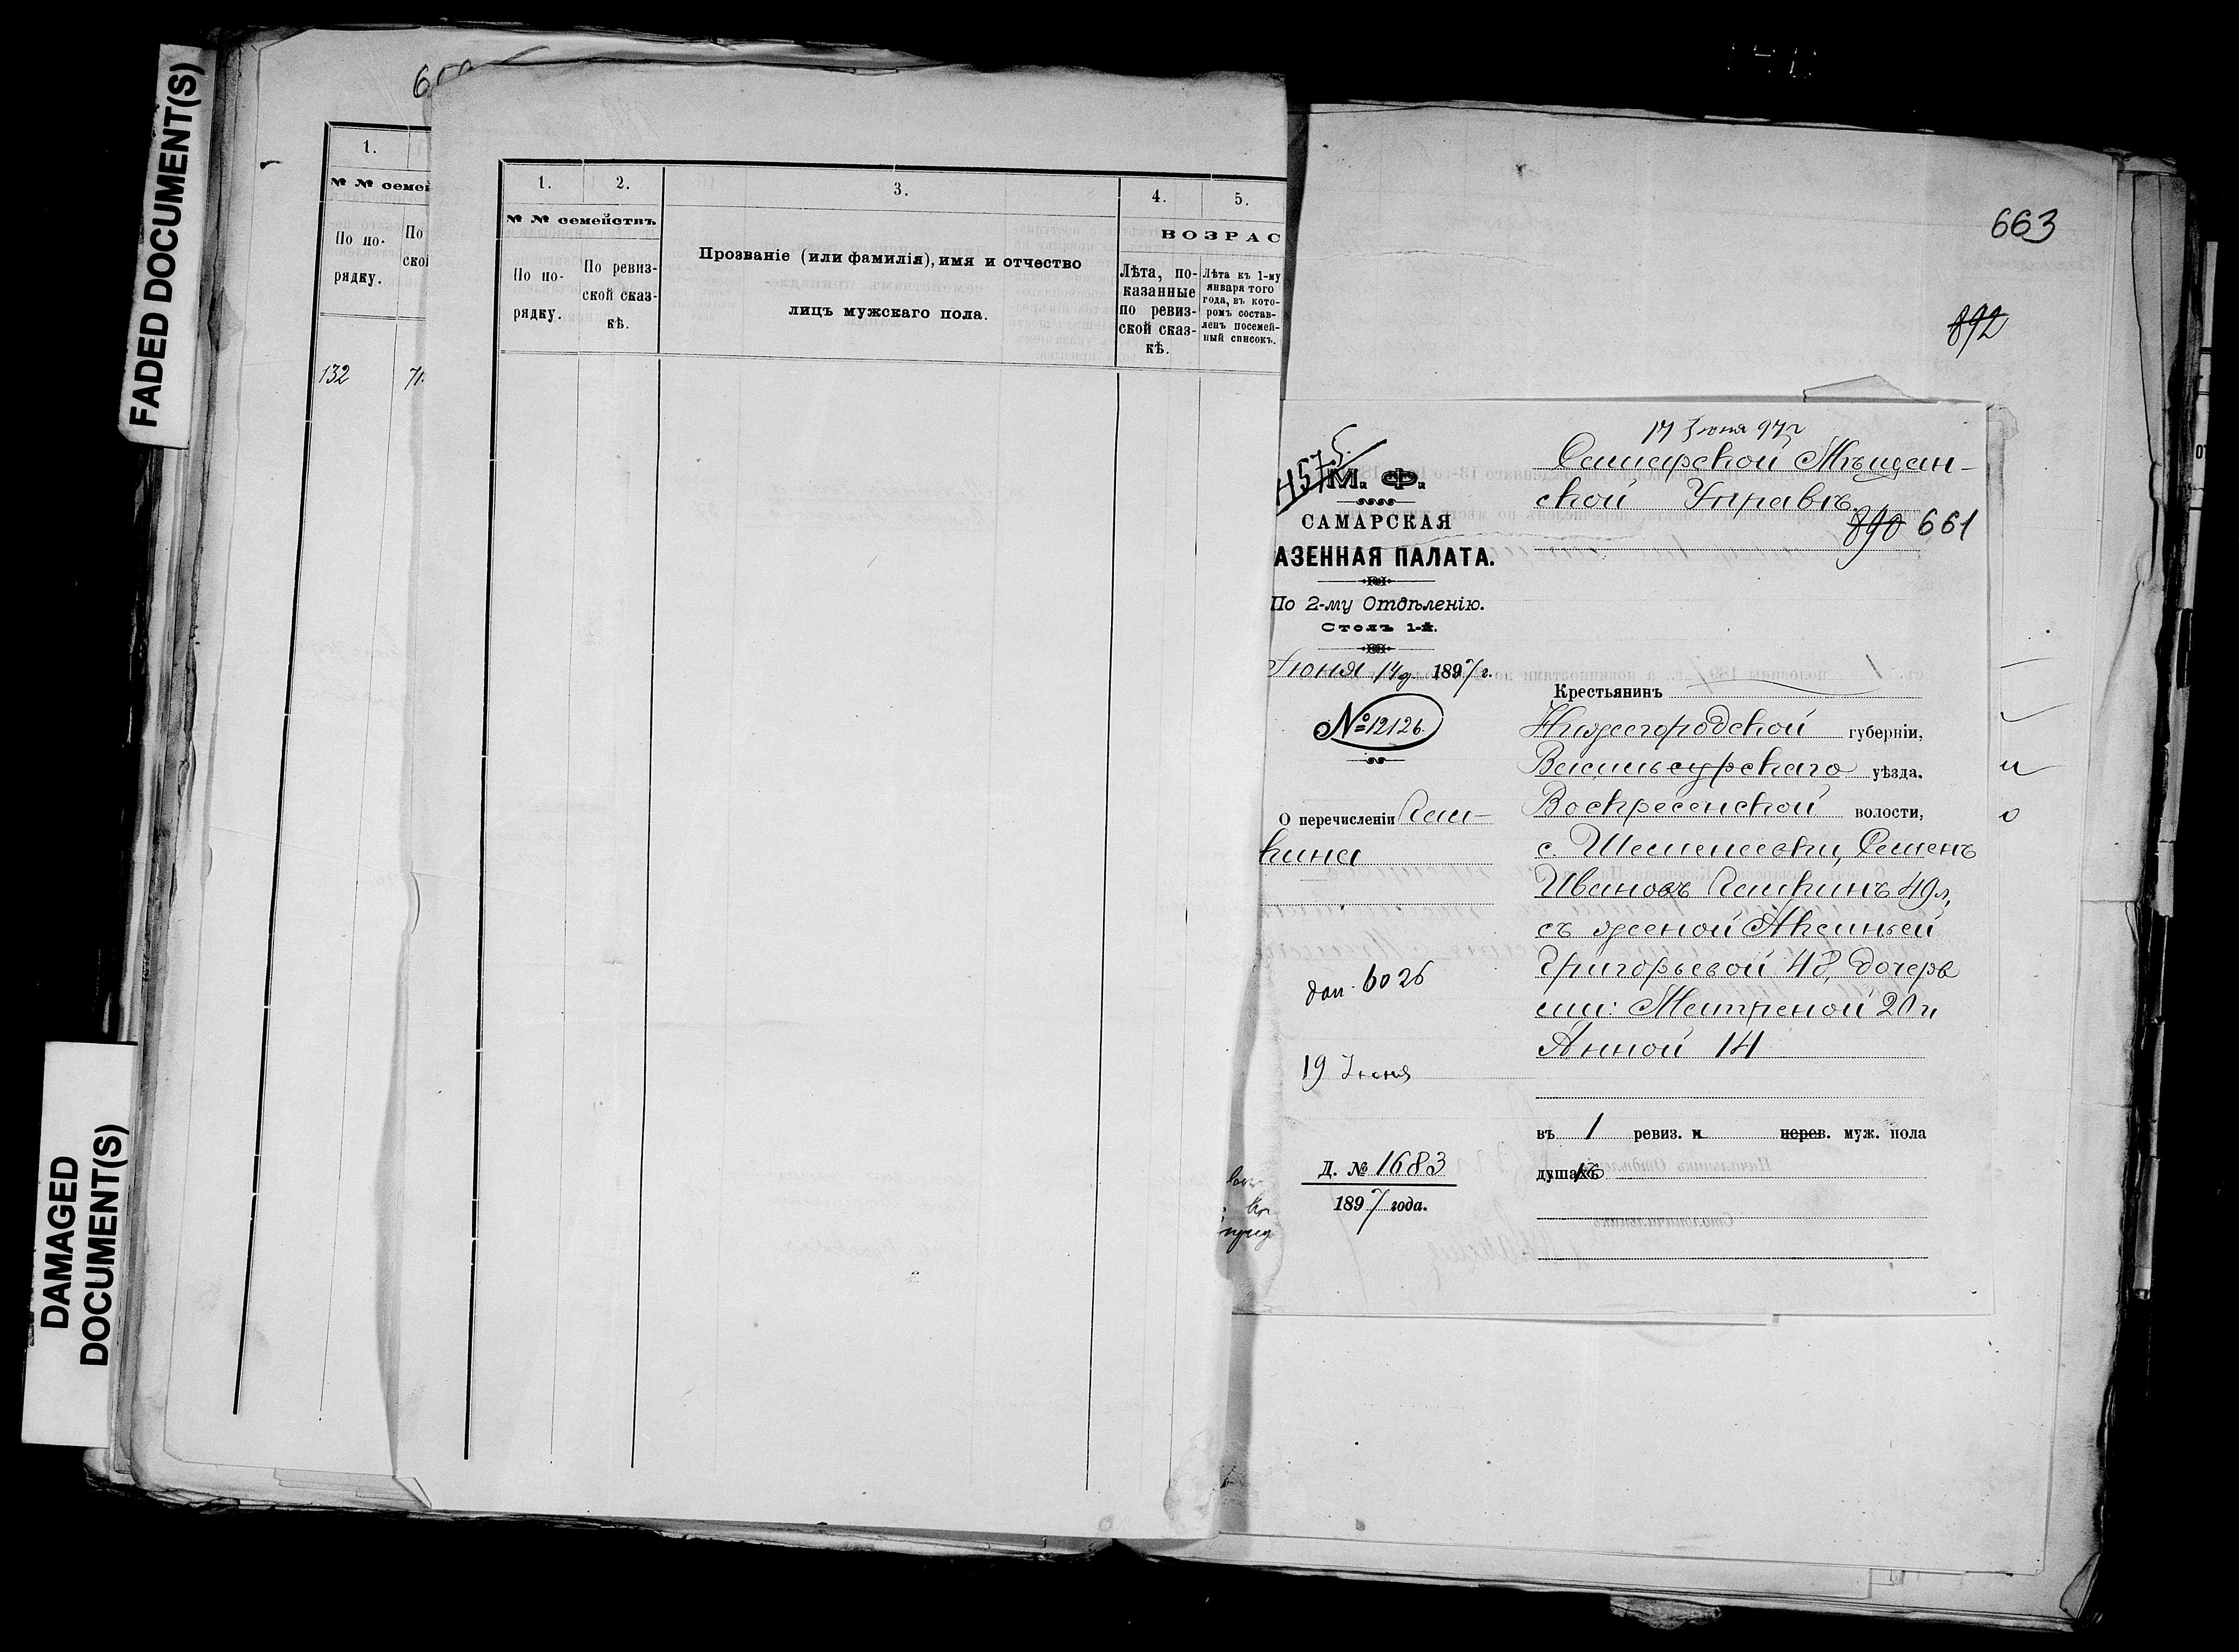 FADED DOCUMENT(S)
DAMAGED
DOCUMENT(S)
1.
№ № семей
По по-
рядку.
По
ской
132
71.
1.
2.
3.
4.
5.
№ № семействъ
ВОЗРАС
По по-
рядку.
По ревиз-
ской сказ-
кѣ.
Прозваніе (или фамилія), имя и отчество
лицъ мужскаго пола.
Лѣта, по-
казанные
по ревиз-
ской сказ-
кѣ.
Лѣта къ 1-му
января того
года, въ кото-
ромъ состав-
ленъ посемей-
ный списокъ.
663
892
17 Іюня 97 г
Самарской Мѣщан-
ской Управѣ.
890 661
М. Ф.
САМАРСКАЯ
АЗЕННАЯ ПАЛАТА.
По 2-му Отдѣленію.
Столъ 1-й.
Іюня 14 д. 1897 г.
№ 12126.
О перечисленіи Паш-
кина
доп. 6026
19 Іюня
Д. № 1683
1897 года.
Крестьянинъ
Нижегородской губерніи,
Васильсурскаго уѣзда,
Воскресенской волости,
с. Семенъ
Ивановъ Пашкинъ 49 л,
съ женой Аксиньей
Григорьевой 48, дочерь
ми: Матреной 20 и
Анной 14
въ 1 ревиз. и перев. муж. пола
душахъ